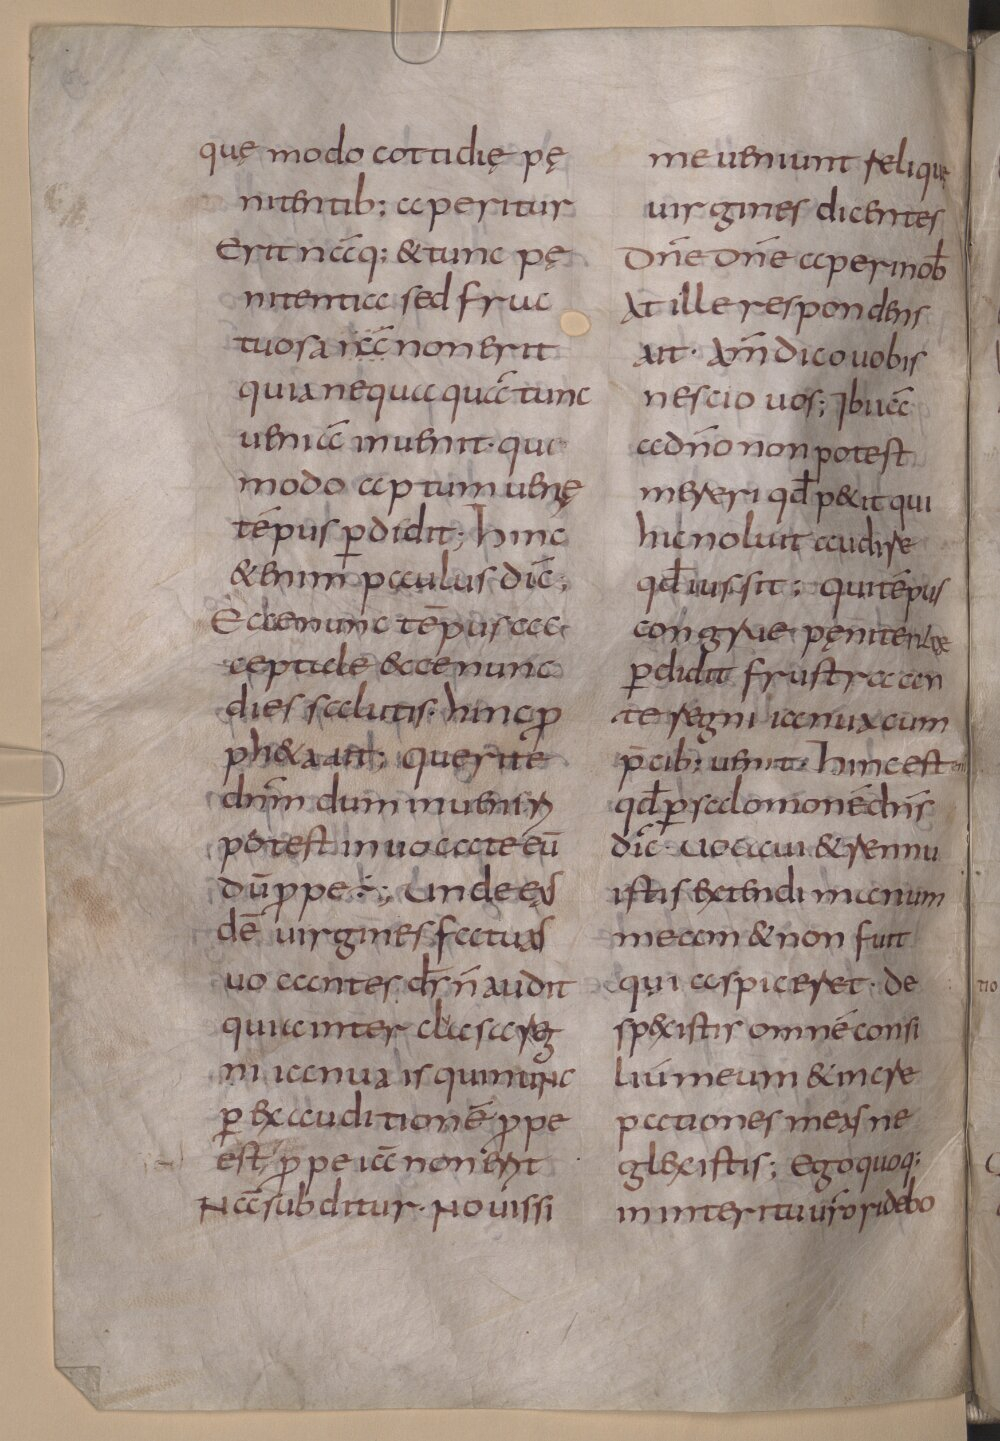 quę modo cottidię pę
nitentib; aperitur
Erit nāq; & tunc pę
nitentia sed fruc
tuosa iā non erit
quia nequaquā tunc
ueniā inuenit· qui
modo aptum uenię
tēpus pdidit; hinc
& enim paulus dic̄;
Ecce nunc tēpus acc
ceptabile & ecce nunc
dies salutis· hinc p
ph&a ait; Querite
dnm̄ dum inueniri
potest inuocate eū
dū ppe ÷; Unde eas
dē uirgines fatuas
uocantes dns̄ n̄ audit
quia inter clausa reg
ni ianua is qui nunc
p exauditionē ppe
est, ppe iā non erit
Nā subditur· Nouissi
me ueniunt relique
uirgines dicentes
Dnē Dnē aperi nob̄
At ille respondens
ait· Am̄ dico uobis
nescio uos; Ibi iā
a dn̄o non potest
mereri qd̄ p&it qui
hic noluit audire
qd̄ iussit; Qui tēpus
congrue pęnitentię
pdidit frustra an
te regni ianua cum
p̄cib; uenit· hinc est eni
qd̄ p salomonē dns̄
dic̄· Uocaui & rennu
istis extendi manum
meam & non fuit
qui aspiceret· de
spexistis omnē consi
liū meum & incre
pationes meas ne
glexistis; Ego quoq;
in interitu ur̄o ridebo
tio